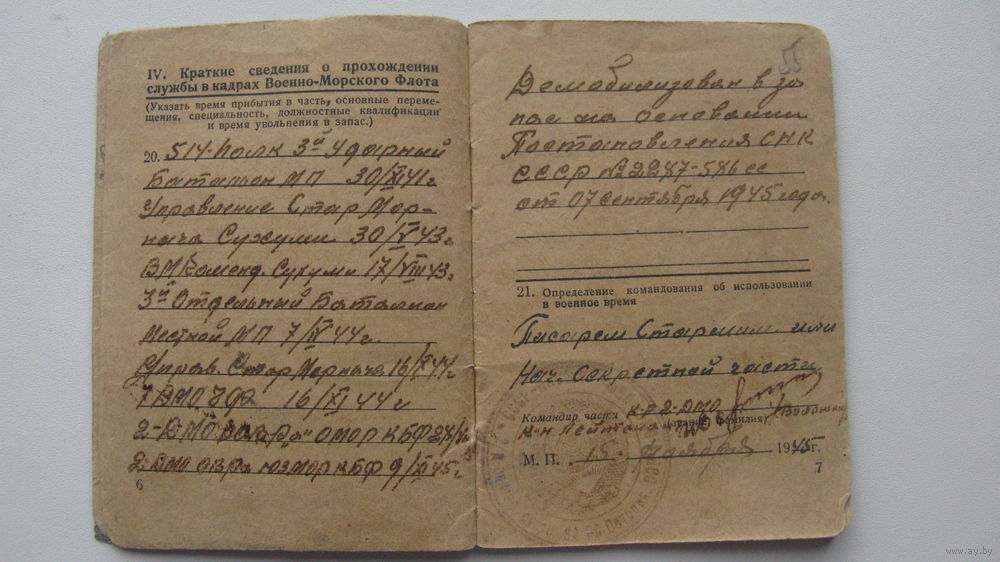 IV. Краткие сведения о прохождении
службы в кадрах Военно-Морского Флота
(Указать время прибытия в часть, основные переме-
щения, специальность, должностные квалификации
и время увольнения в запас.)
20. 514-Полк 3й Ударный
Батальон МП 30/XI 41г
Управление Стар Мор-
нача Сухуми 30/V 43г
ВМКоменд. Сухуми 17/VIII 43г
3й Отдельный Баталион
Местной МП 7/IV 44г.
Управ. Стар Морнача 16/X 44г
7 ВМО ЧФ 16/XI 44г
2-ДМО ОМОР КБФ
2 ДМО овра юзмор КБФ 9/XI 45г
6
55
Демобилизован в за
пас на основании
Постановления СНК
СССР №2287-586сс
от 07 сентября 1945 года.
21. Определение командования об использовании
в военное время
Писарем Старшим или
Нач. Секретной части
Командир части К-р 2-ДМО
к-н Лейтенант (звание, фамилия)
М. П. 15 ноября 1945г.
7
www.ay.by